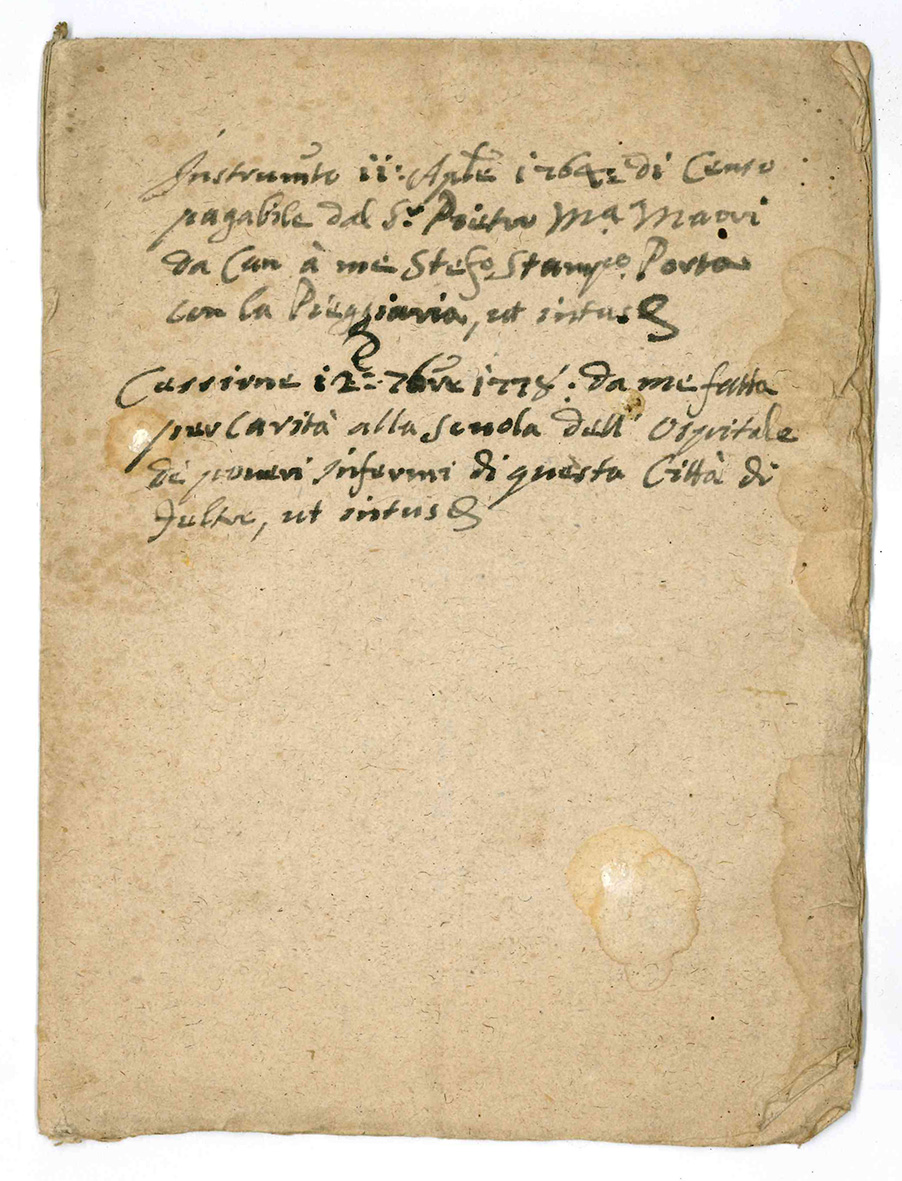 Instrumto ii: Aple 1764: di Censo
pagabile dal Sr. Pietro Ma. Maori
da Can à me Stefo. Stampo. Porta
con la Pieggiaria, ut intus
Cessione 12: 7bre 1778: da me fatta
per Carità alla Scuola dell' Ospitale
dè poueri Infermi di questa Città di
Feltre, ut intus